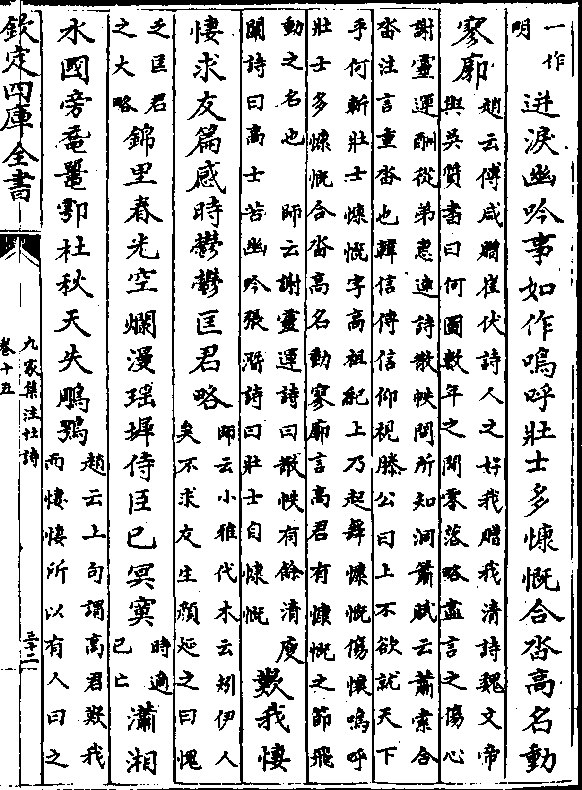 一作
明
迸淚幽吟事如作嗚呼壯士多慷慨合沓高名動
寥廓
趙云傅咸贈崔伏詩人之好我贈我清詩魏文帝
與吳質書曰何圖數年之間零落略盡言之傷心
謝靈運酬從弟惠連詩散帙問所知洞簫賦云蕭索合
沓注言重沓也韓信傳信仰視滕公曰上不欲就天下
乎何斬壯士慷慨字高祖紀上乃起舞慷慨傷懷嗚呼
壯士多慷慨合沓高名動寥廓言高君有慷慨之節飛
動之名也 師云謝靈運詩曰散帙有餘清庾
闡詩曰高士苦幽吟張潛詩曰壯士自慷慨
歎我悽
悽求友篇感時鬱鬱匡君略
師云小雅伐木云矧伊人
矣不求友生顏延之曰愧
乏匡君
之大略
錦里春光空爛漫瑤墀侍臣已冥寞
時適
已亡
瀟湘
水國旁黿鼉鄠杜秋天失鵰鶚
趙云上句謂高君歎我
而悽悽所以有人曰之
欽定四庫全書
九家集注杜詩
卷十五
三十二